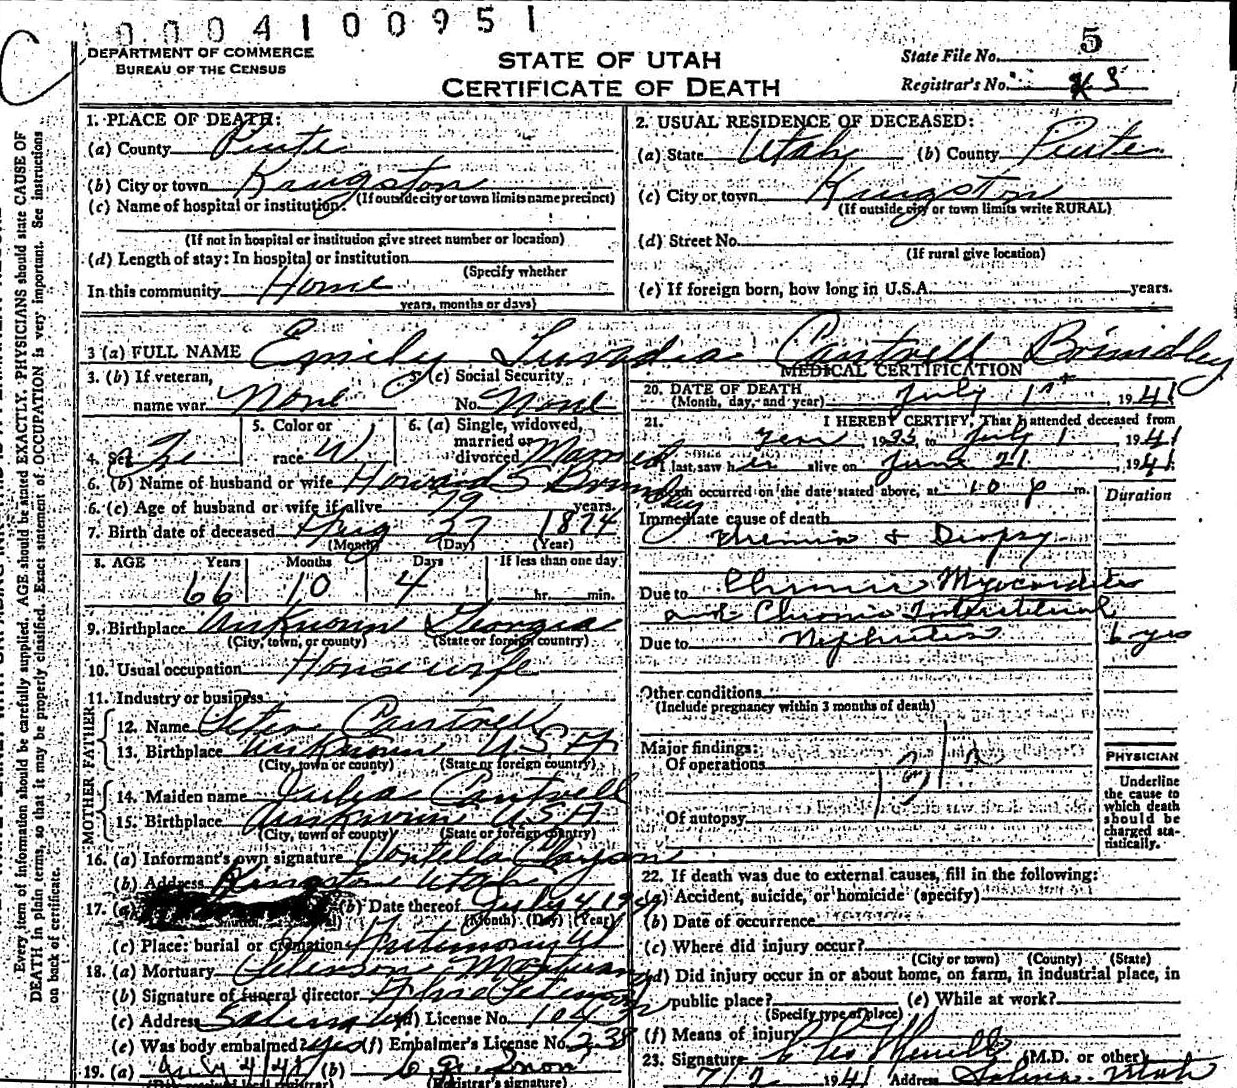 0004100951
DEPARTMENT OF COMMERCE
BUREAU OF THE CENSUS
STATE OF UTAH
CERTIFICATE OF DEATH
State File No. 5
Registrar's No. 3
1. PLACE OF DEATH:
(a) County Piute
(b) City or town Kingston
(If outside city or town limits name precinct)
(c) Name of hospital or institution:
(If not in hospital or institution give street number or location)
(d) Length of stay: In hospital or institution
(Specify whether
In this community Home
years, months or days)
2. USUAL RESIDENCE OF DECEASED:
(a) State Utah (b) County Piute
(c) City or town Kingston
(If outside city or town limits write RURAL)
(d) Street No.
(If rural give location)
(e) If foreign born, how long in U.S.A. years.
3 (a) FULL NAME Emily Luvadia Cantrell Brindley
3. (b) If veteran,
name war None
3. (c) Social Security
No. None
4. Sex Fe
5. Color or
race W
6. (a) Single, widowed,
married or
divorced Married
6. (b) Name of husband or wife Howard S Brindley
6. (c) Age of husband or wife if alive 79 years.
7. Birth date of deceased Aug 27 1874
(Month) (Day) (Year)
8. AGE Years Months Days If less than one day
66 10 4 hr. min.
9. Birthplace Unknown Georgia
(City, town, or county) (State or foreign country)
10. Usual occupation Housewife
11. Industry or business
FATHER
12. Name Peter Cantrell
13. Birthplace Unknown U.S.A
(City, town or county) (State or foreign country)
MOTHER
14. Maiden name Julia Cantrell
15. Birthplace Unknown U.S.A
(City, town or county) (State or foreign country)
16. (a) Informant's own signature
(b) Address Kingston Utah
17. (a) (b) Date thereof July 4 19
(Month) (Day) (Year)
(c) Place: burial or cremation Antimony Ut
18. (a) Mortuary Peterson Mortuary
(b) Signature of funeral director Peterson
(c) Address Salina (d) License No. 104
(e) Was body embalmed? yes (f) Embalmer's License No. 238
19. (a) July 4/41 (b)
(Registrar's signature)
MEDICAL CERTIFICATION
20. DATE OF DEATH
(Month, day, and year) July 1st, 1941
21. I HEREBY CERTIFY, That I attended deceased from
1935 to July 1 1941
I last saw her alive on June 21 1941
Death occurred on the date stated above, at 10 p m.
Duration
Immediate cause of death
Uremia & Dropsy
Due to Chronic Myocarditis
and Chronic Interstitial
Due to Nephritis 6 yrs
Other conditions
(Include pregnancy within 3 months of death)
Major findings:
Of operations
Of autopsy
131
PHYSICIAN
Underline
the cause to
which death
should be
charged sta-
tistically.
22. If death was due to external causes, fill in the following:
(a) Accident, suicide, or homicide (specify)
(b) Date of occurrence
(c) Where did injury occur?
(City or town) (County) (State)
(d) Did injury occur in or about home, on farm, in industrial place, in
public place? (e) While at work?
(Specify type of place)
(f) Means of injury
23. Signature (M.D. or other)
7/2 1941 Address Salina Utah
Every item of information should be carefully supplied. AGE should be stated EXACTLY. PHYSICIANS should state CAUSE OF
DEATH in plain terms, so that it may be properly classified. Exact statement of OCCUPATION is very important. See instructions
on back of certificate.